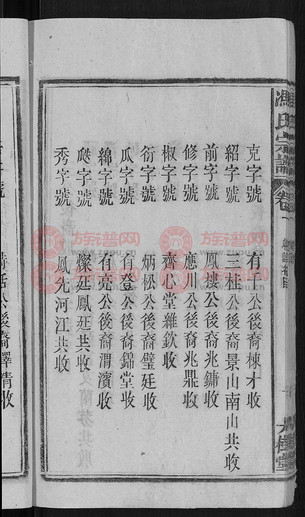 馮氏宗譜
克字號 有千公後裔棟才收
紹字號 三柱公後裔景山南山共收
前字號 鳳摟公後裔兆鏞收
修字號 應川公後裔兆鼎收
椒字號 齊心堂雜欽收
衍字號 炳松公後裔璧廷收
瓜字號 有登公後裔錦堂收
綿字號 有亮公後裔渭濱收
瓞字號 燦廷鳳廷共收
秀字號 鳳先河江共收
族谱网